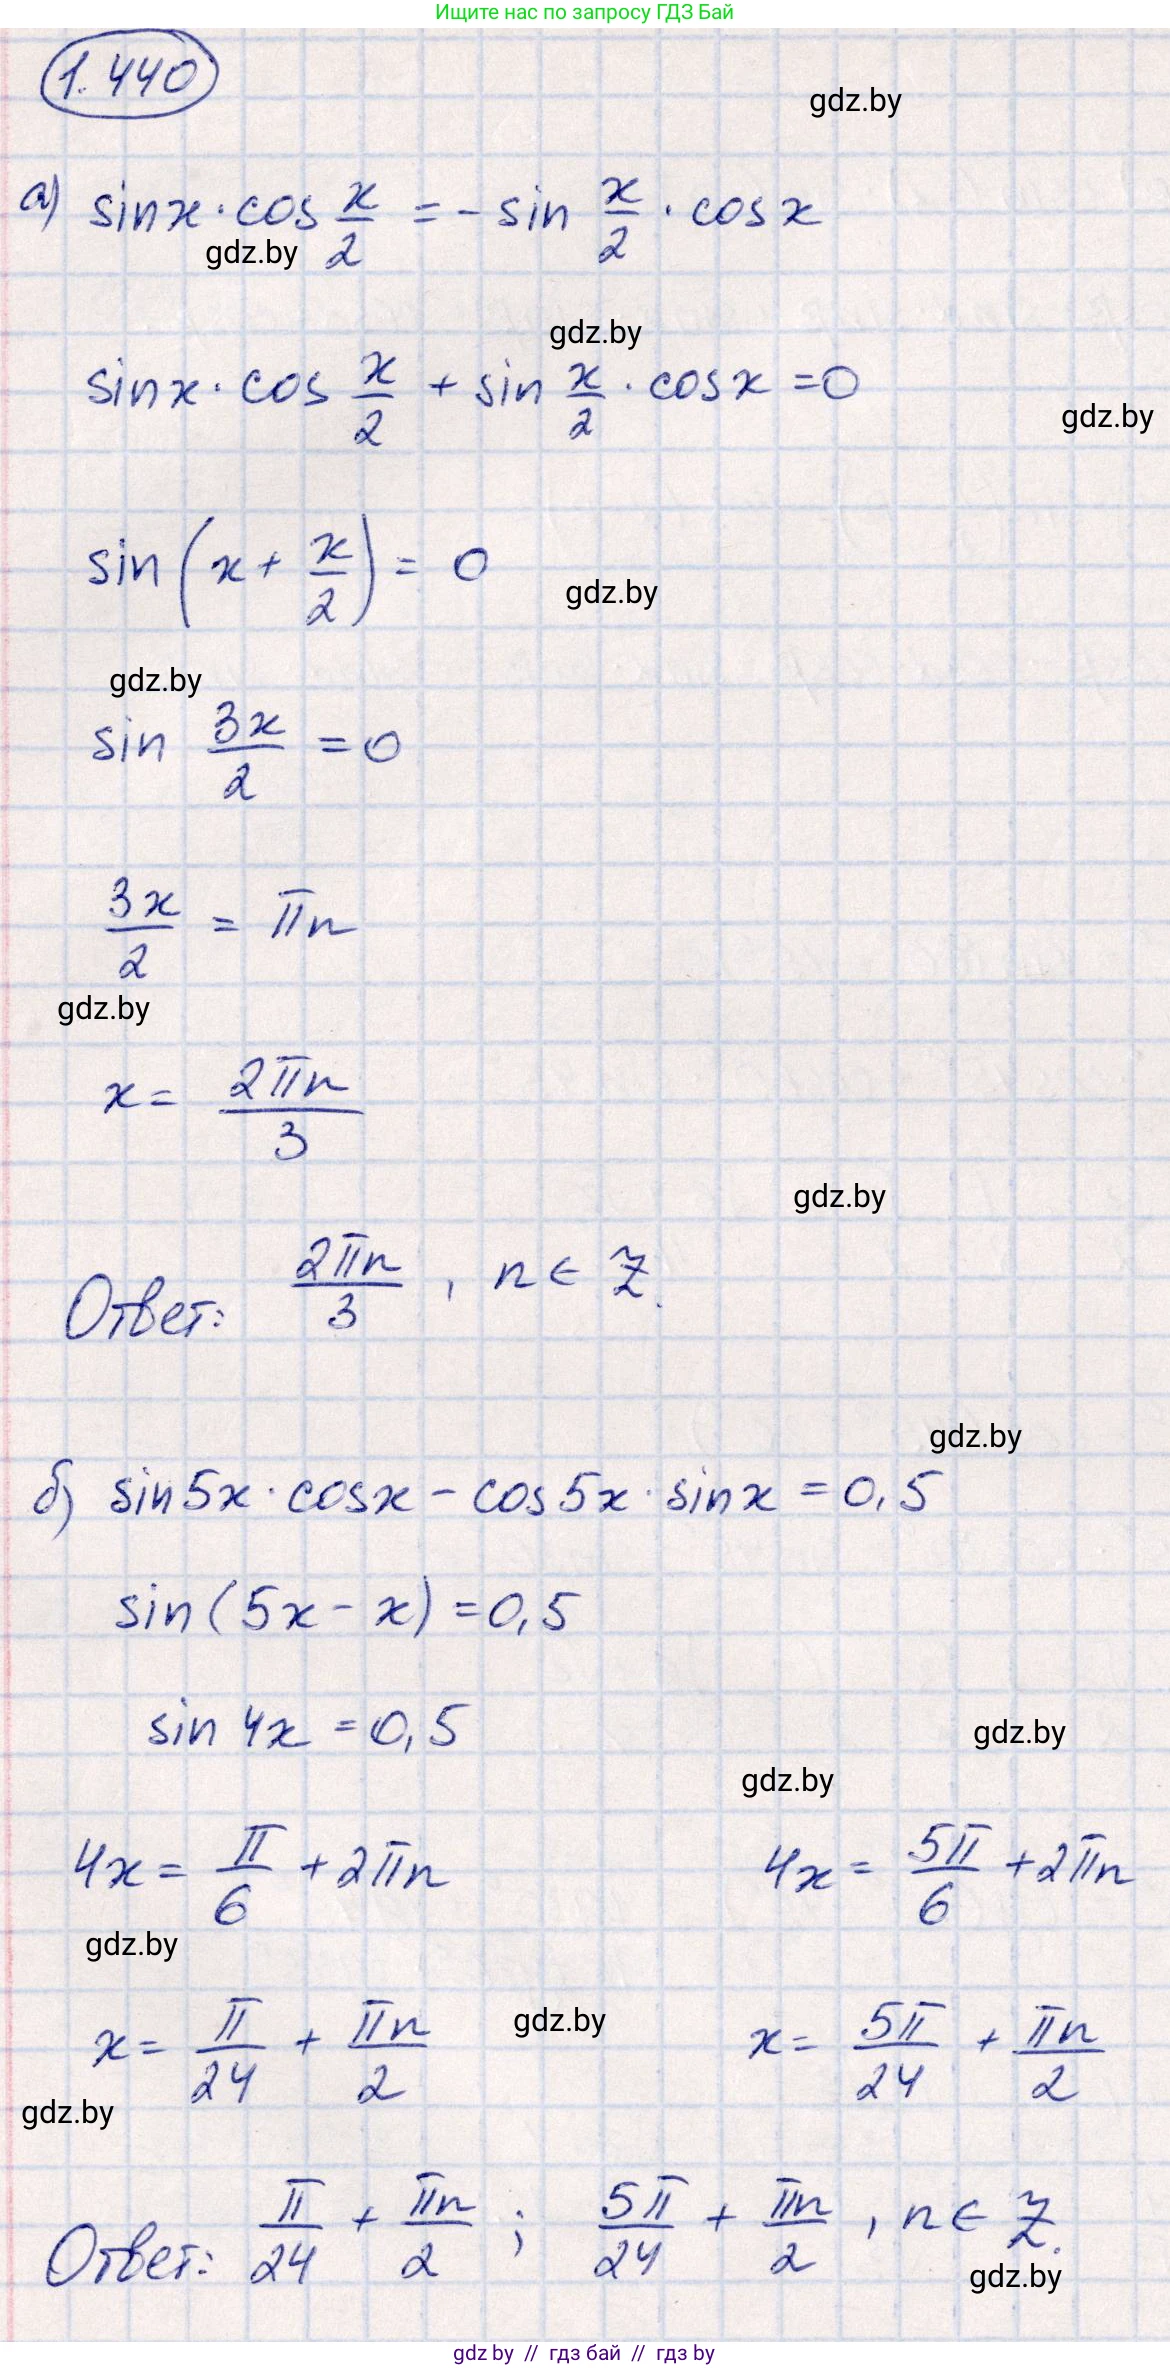 Ищите нас по запросу ГДЗ Бай
1.440
gdz.by
а) sinx · cos x/2 = - sin x/2 · cosx
gdz.by
gdz.by
sinx · cos x/2 + sin x/2 · cosx = 0
gdz.by
sin (x + x/2) = 0
gdz.by
gdz.by
sin 3x/2 = 0
3x/2 = πn
gdz.by
x = 2πn/3
gdz.by
Ответ: 2πn/3 , n ∈ Z.
gdz.by
б) sin5x · cosx - cos5x · sinx = 0,5
sin(5x - x) = 0,5
sin 4x = 0,5
gdz.by
gdz.by
4x = π/6 + 2πn 4x = 5π/6 + 2πn
gdz.by
x = π/24 + πn/2 gdz.by x = 5π/24 + πn/2
gdz.by
Ответ: π/24 + πn/2 ; 5π/24 + πn/2 , n ∈ Z.
gdz.by
gdz by // гдз бай // гдз by